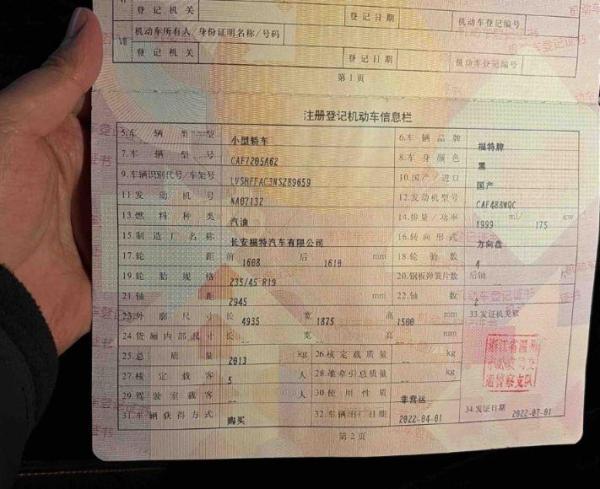 登记机关 登记日期 机动车登记编号
机动车所有人/身份证明名称/号码
登记机关 登记日期 机动车登记编号
第1页
注册登记机动车信息栏
5.车辆类型 小型轿车 6.车辆品牌 福特牌
7.车辆型号 CAF7205A62 8.车身颜色 黑
9.车辆识别代号/车架号 LVSHFFAC3NS289659 10.国产/进口 国产
11.发动机号 NA07132 12.发动机型号 CAF488WQC
13.燃料种类 汽油 14.排量/功率 1999 ml/ 175 kw
15.制造厂名称 长安福特汽车有限公司 16.转向形式 方向盘
17.轮距 前 1608 后 1610 mm 18.轮胎数 4
19.轮胎规格 235/45 R19 20.钢板弹簧片数 后轴
21.轴距 2945 mm 22.轴数
23.外廓尺寸 长 4935 宽 1875 高 1500 mm 33.发证机关章
24.货厢内部尺寸 长 宽 高 mm
25.总质量 2013 kg 26.核定载质量 kg
27.核定载客 5 人 28.准牵引总质量 kg
29.驾驶室载客 人 30.使用性质 非营运
31.车辆获得方式 购买 32.车辆出厂日期 2022-04-01 34.发证日期 2022-07-01
第2页